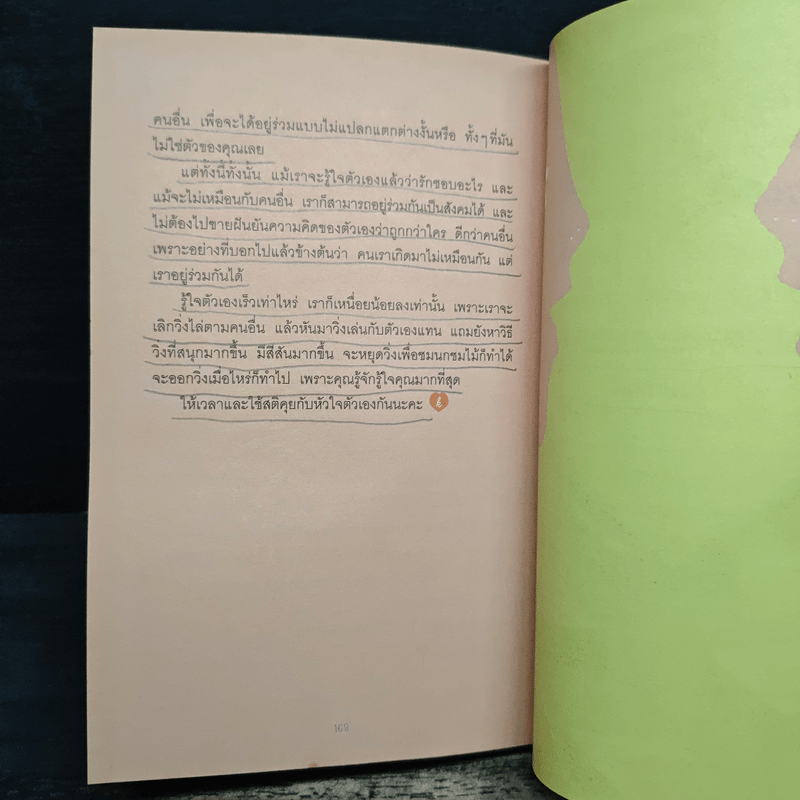 คนอื่น เพื่อจะได้อยู่ร่วมแบบไม่แปลกแตกต่างงั้นหรือ ทั้งๆที่มัน
ไม่ใช่ตัวของคุณเลย
แต่ทั้งนี้ทั้งนั้น แม้เราจะรู้ใจตัวเองแล้วว่ารักชอบอะไร และ
แม้จะไม่เหมือนกับคนอื่น เราก็สามารถอยู่ร่วมกันเป็นสังคมได้ และ
ไม่ต้องไปขายฝันยันความคิดของตัวเองว่าถูกกว่าใคร ดีกว่าคนอื่น
เพราะอย่างที่บอกไปแล้วข้างต้นว่า คนเราเกิดมาไม่เหมือนกัน แต่
เราอยู่ร่วมกันได้
รู้ใจตัวเองเร็วเท่าไหร่ เราก็เหนื่อยน้อยลงเท่านั้น เพราะเราจะ
เลิกวิ่งไล่ตามคนอื่น แล้วหันมาวิ่งเล่นกับตัวเองแทน แถมยังหาวิธี
วิ่งที่สนุกมากขึ้น มีสีสันมากขึ้น จะหยุดวิ่งเพื่อชมนกชมไม้ก็ทำได้
จะออกวิ่งเมื่อไหร่ก็ทำไป เพราะคุณรู้จักรู้ใจคุณมากที่สุด
ให้เวลาและใช้สติคุยกับหัวใจตัวเองกันนะคะ
169